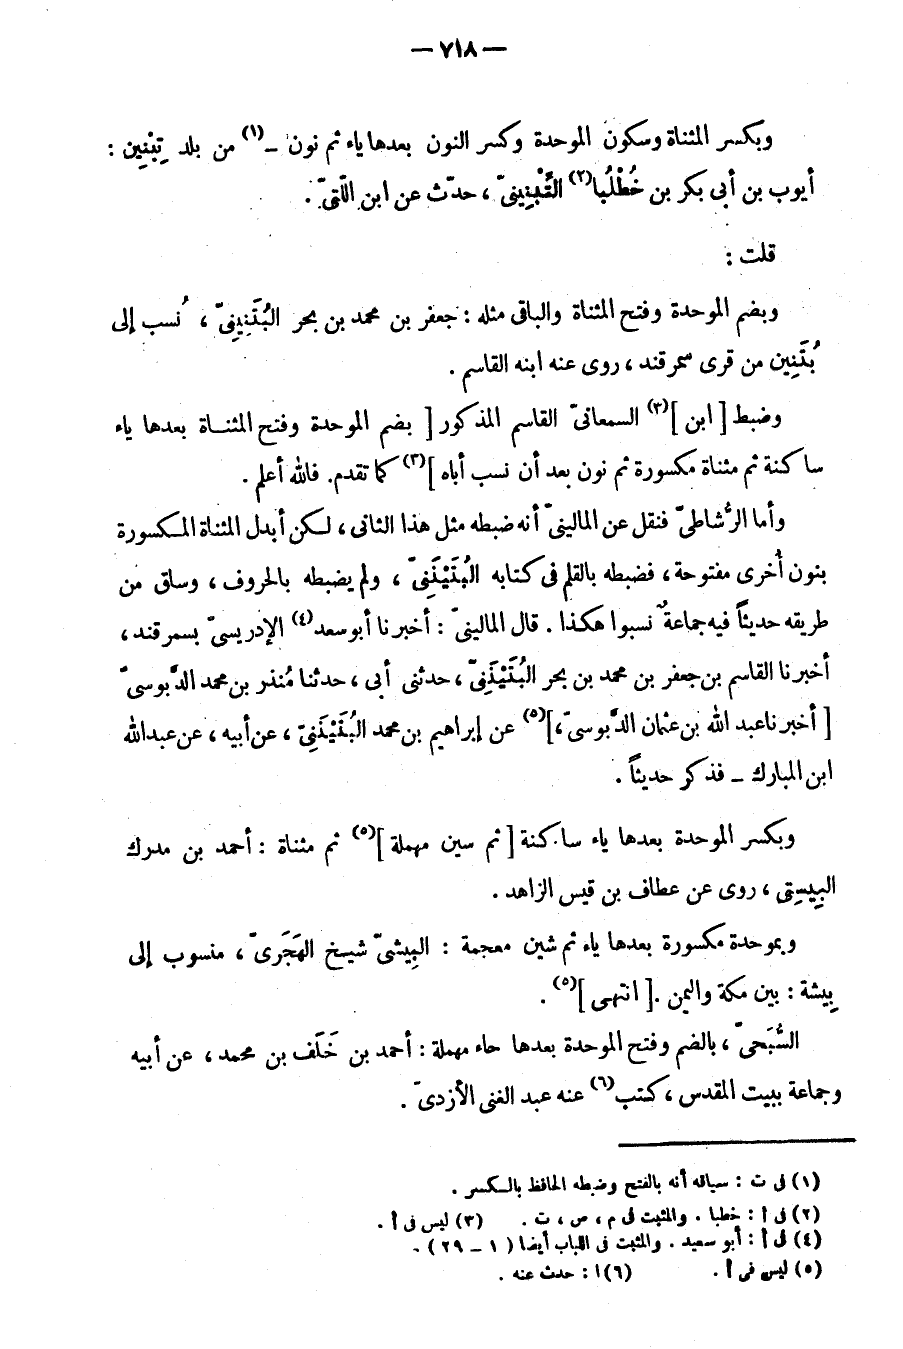 — ٧١٨ —
وبكسر المثناة وسكون الموحدة وكسر النون بعدها ياء ثم نون –(١) من بلد تِبْنِين :
أيوب بن أبى بكر بن خُطْلُبا(٢) التِّبْنِينىّ ، حدّث عن ابن اللّتىّ .
قلت :
وبضم الموحدة وفتح المثناة والباقى مثله : جعفر بن محمد بن بحر البُتَنِينىّ ، نُسب إلى
بُتَنِين من قرى سمرقند ، روى عنه ابنه القاسم .
وضبط [ ابن ](٣) السمعانىّ القاسم المذكور [ بضم الموحدة وفتح المثنـاة بعدها ياء
ساكنة ثم مثناة مكسورة ثم نون بعد أن نسب أباه ](٣) كما تقدم. فالله أعلم .
وأما الرُّشاطىّ فنقل عن المالينىّ أنه ضبطه مثل هذا الثانى ، لـكن أبدل المثناة المـكسورة
بنون أُخرى مفتوحة ، فضبطه بالقلم فى كتابه البُتَيْنَنِىّ ، ولم يضبطه بالحروف ، وساق من
طريقه حديثاً فيه جماعةٌ نسبوا هكذا . قال المالينىّ : أخبرنا أبو سعد(٤) الإدريسىّ بسمرقند ،
أخبرنا القاسم بن جعفر بن محمد بن بحر البُتَيْنَنِىّ ، حدثنى أبى ، حدثنا مُنذر بن محمد الدَّبوسىّ
[ أخبرنا عبد الله بن عثمان الدَّبوسىّ ،](٥) عن إبراهيم بن محمد البُتَيْنَنِىّ ، عن أبيه ، عن عبدالله
ابن المبارك – فذكر حديثاً .
وبكسر الموحدة بعدها ياء ساكنة [ ثم سين مهملة ](٥) ثم مثناة : أحمد بن مدرك
البِيستِى ، روى عن عطاف بن قيس الزاهد .
وبموحدة مكسورة بعدها ياء ثم شين معجمة : البِيشىّ شيخ الهَجَرىّ ، منسوب إلى
بِيشة : بين مكة واليمن .[ انتهى ](٥) .
السُّبَحىّ ، بالضم وفتح الموحدة بعدها حاء مهملة : أحمد بن خَلَف بن محمد ، عن أبيه
وجماعة ببيت المقدس ، كتب(٦) عنه عبد الغنى الأزدىّ .
(١) فى ت : سياقه أنه بالفتح وضبطه الحافظ بالـكسر .
(٢) فى أ : خطبا . والمثبت فى م ، ص ، ت . (٣) ليس فى أ .
(٤) فى أ : أبو سعيد . والمثبت فى اللباب أيضا ( ١ – ٢٩ ) .
(٥) ليس فى أ . (٦) ا : حدث عنه .